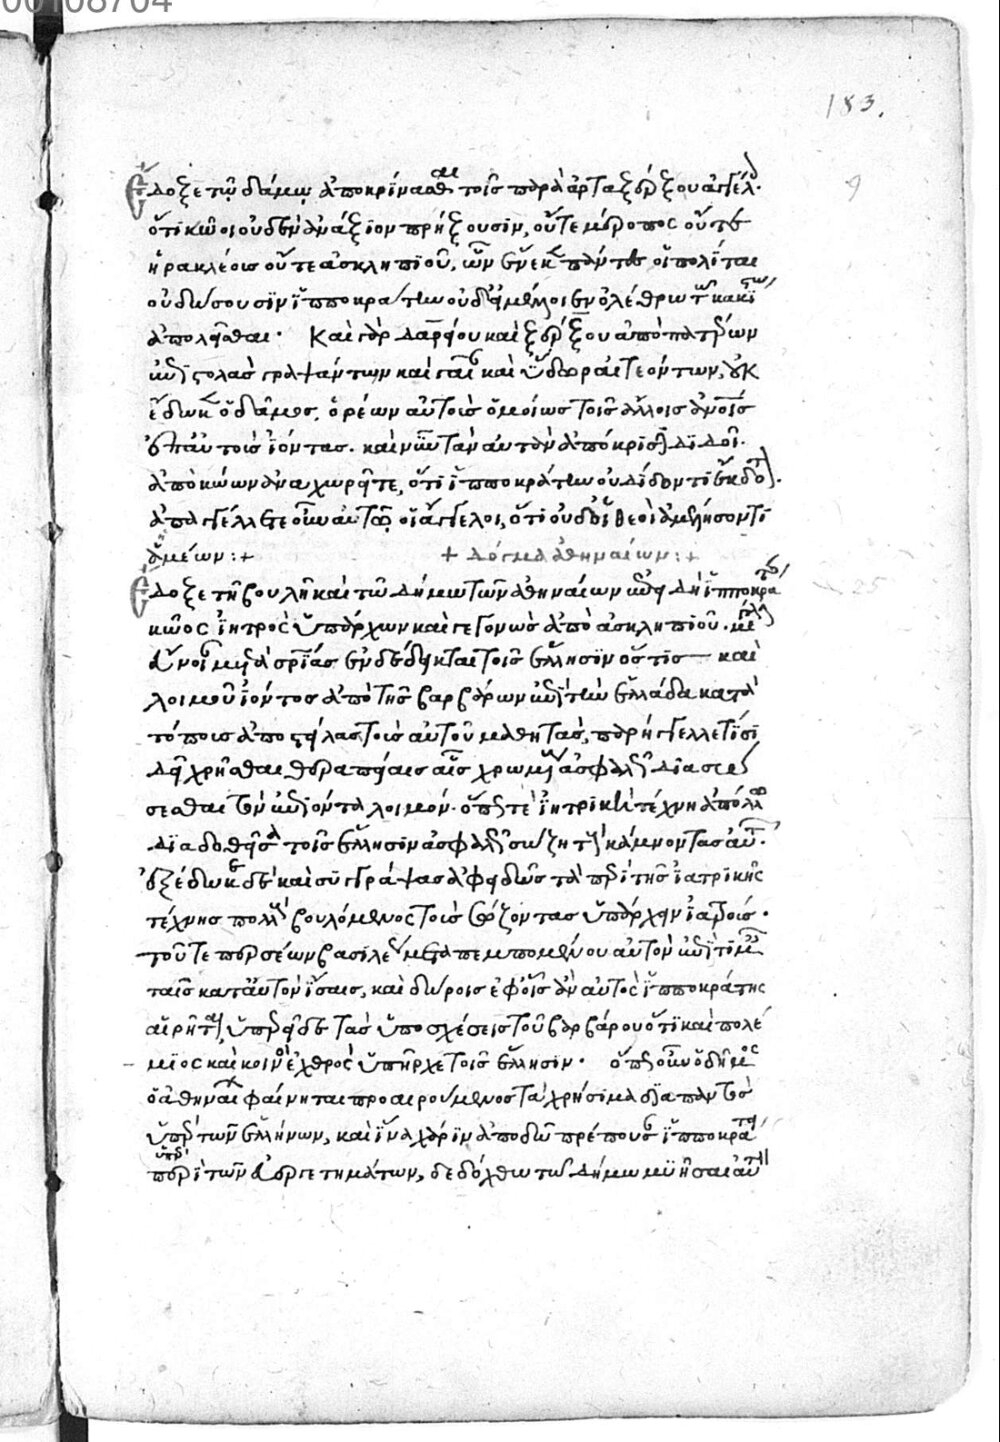 00108704
183.
9
Ἔδοξε τῷ δάμῳ ἀποκρίνασθαι τοῖς παρὰ ἀρταξέρξου ἀγγέλ.
ὅτι κῶοι οὐδὲν ἀνάξιον πρήξουσιν, οὔτε μέροπος οὔτε
ἡρακλέοις οὔτε ἀσκληπιοῦ, ὧν ἕνεκ πάντες οἱ πολῖται
οὐ δώσουσιν ἱπποκράτην οὐδ' εἰ μέλλοιεν ὀλέθρω τῶ κακίστω
ἀπολεῖσθαι. Καὶ γὰρ δαρείου καὶ ξέρξου ἀπὸ πατέρων
ἐπιστολὰς γραψάντων καὶ γαῖαν καὶ ὕδωρ αἰτεόντων, οὐκ
ἔδωκεν ὁ δᾶμος, ὁρέων αὐτοὺς ὁμοίως τοῖς ἄλλοις ἀνθρώποις
θνατοὺς ἰόντας. καὶ νῦν τὰν αὐτὰν ἀπόκρισιν διδοῖ.
ἀπὸ κώων ἀναχωρεῖτε, ὅτι ἱπποκράτην οὐ δίδοντι ἔκδοτον.
ἀπαγγέλλετε οὖν αὐτῷ οἱ ἄγγελοι, ὅτι οὐδ' οἱ θεοὶ ἀμελήσοντι
ἡμέων:+ + Δόγμα ἀθηναίων:+
Ἔδοξε τῇ βουλῇ καὶ τῶ δήμω τῶν ἀθηναίων ἐπειδὴ ἱπποκράτης
25
κῶος ἰητρὸς ὑπάρχων καὶ γεγονὼς ἀπὸ ἀσκληπιοῦ. μεγάλην
εὔνοιαν μετὰ σωτηρίας ἐνδέδεικται τοῖς ἕλλησιν ὅστις — καὶ
λοιμοῦ ἰόντος ἀπὸ τῆς βαρβάρων ἐπὶ τὴν ἑλλάδα κατὰ
τόποις ἀποστείλας τοὺς αὐτοῦ μαθητὰς, παρήγγελλε τίσι
δεῖ χρῆσθαι θεραπείαις αἷς χρωμένους ἀσφαλῶς διασώ
σεσθαι τὸν ἐπιόντα λοιμόν. ὅπως τε ἰητρικὴ τέχνη ἀπόλλωνος
διαδοθεῖσα τοῖς ἕλλησιν ἀσφαλῶς σώζη τοὺς κάμνοντας αὐτῶν.
ἐξέδωκε δὲ καὶ συγγράψας ἀφειδῶς τὰ περὶ τῆς ἰατρικῆς
τέχνης πολλοὺς βουλόμενος τοὺς σώζοντας ὑπάρχειν ἰατρούς.
τοῦ τε περσέων βασιλέως μεταπεμπομένου αὐτὸν ἐπὶ τιμαῖς
ταῖς κατ' αὐτὸν ἴσαις, καὶ δώροις ἐφ' οἷς ἂν αὐτὸς ἱπποκράτης
αἱρῆται, ὑπερεῖδε τὰς ὑποσχέσεις τοῦ βαρβάρου ὅτι καὶ πολέ
μιος καὶ κοινὸς ἐχθρὸς ὑπῆρχε τοῖς ἕλλησιν. ὅπως οὖν ὁ δῆμος
ὁ ἀθηναίων φαίνηται προαιρούμενος τὰ χρήσιμα διαπαντὸς
ὑπὲρ τῶν ἑλλήνων, καὶ ἵνα χάριν ἀποδῶ πρέπουσαν ἱπποκράτει
ὑπὲρ
περὶ τῶν εὐεργετημάτων, δεδόχθω τῶ δήμω μυῆσαι αὐτὸν